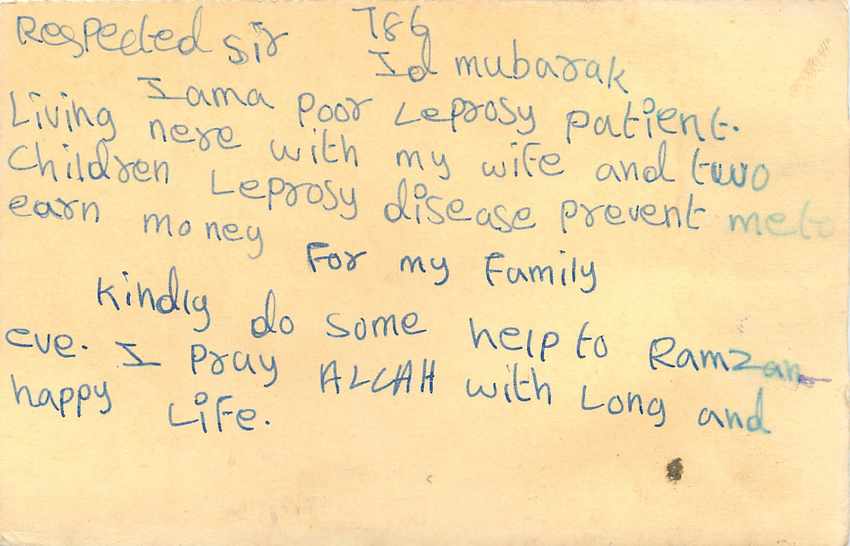 Respected Sir 786
Id mubarak
I am a poor Leprosy patient.
Living here with my wife and two
Children Leprosy disease prevent me to
earn money
For my Family
Kindly do some help to Ramzan
eve. I pray ALLAH with Long and
happy Life.